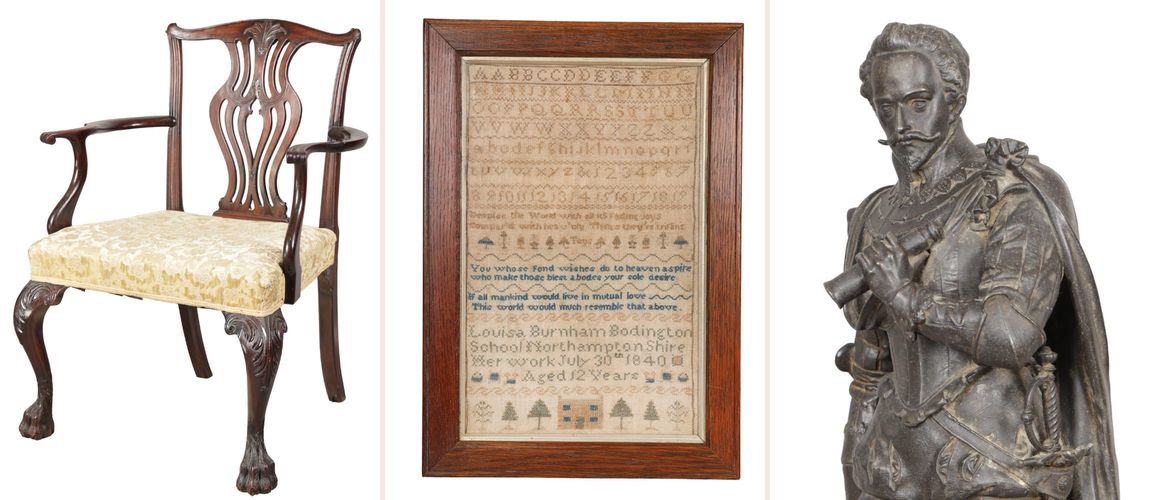 A A B B C C D D E E F F G G
V V W W X X Y Y Z Z
a b c d e f g h i j k l m n o p q r f
t u v w x y z & 1 2 3 4 5 6 7
8 9 10 11 12 13 14 15 16 17 18 19
Despise the World with all its Fading Joys
Compar'd with heav'nly Things they're trifling
Toys
You whose Fond wishes do to heaven aspire
who make those blest abodes your sole desire
If all mankind would live in mutual love
This world would much resemble that above.
Louisa Burnham Bodington
School Northampton Shire
Her work July 30th 1840
Aged 12 Years